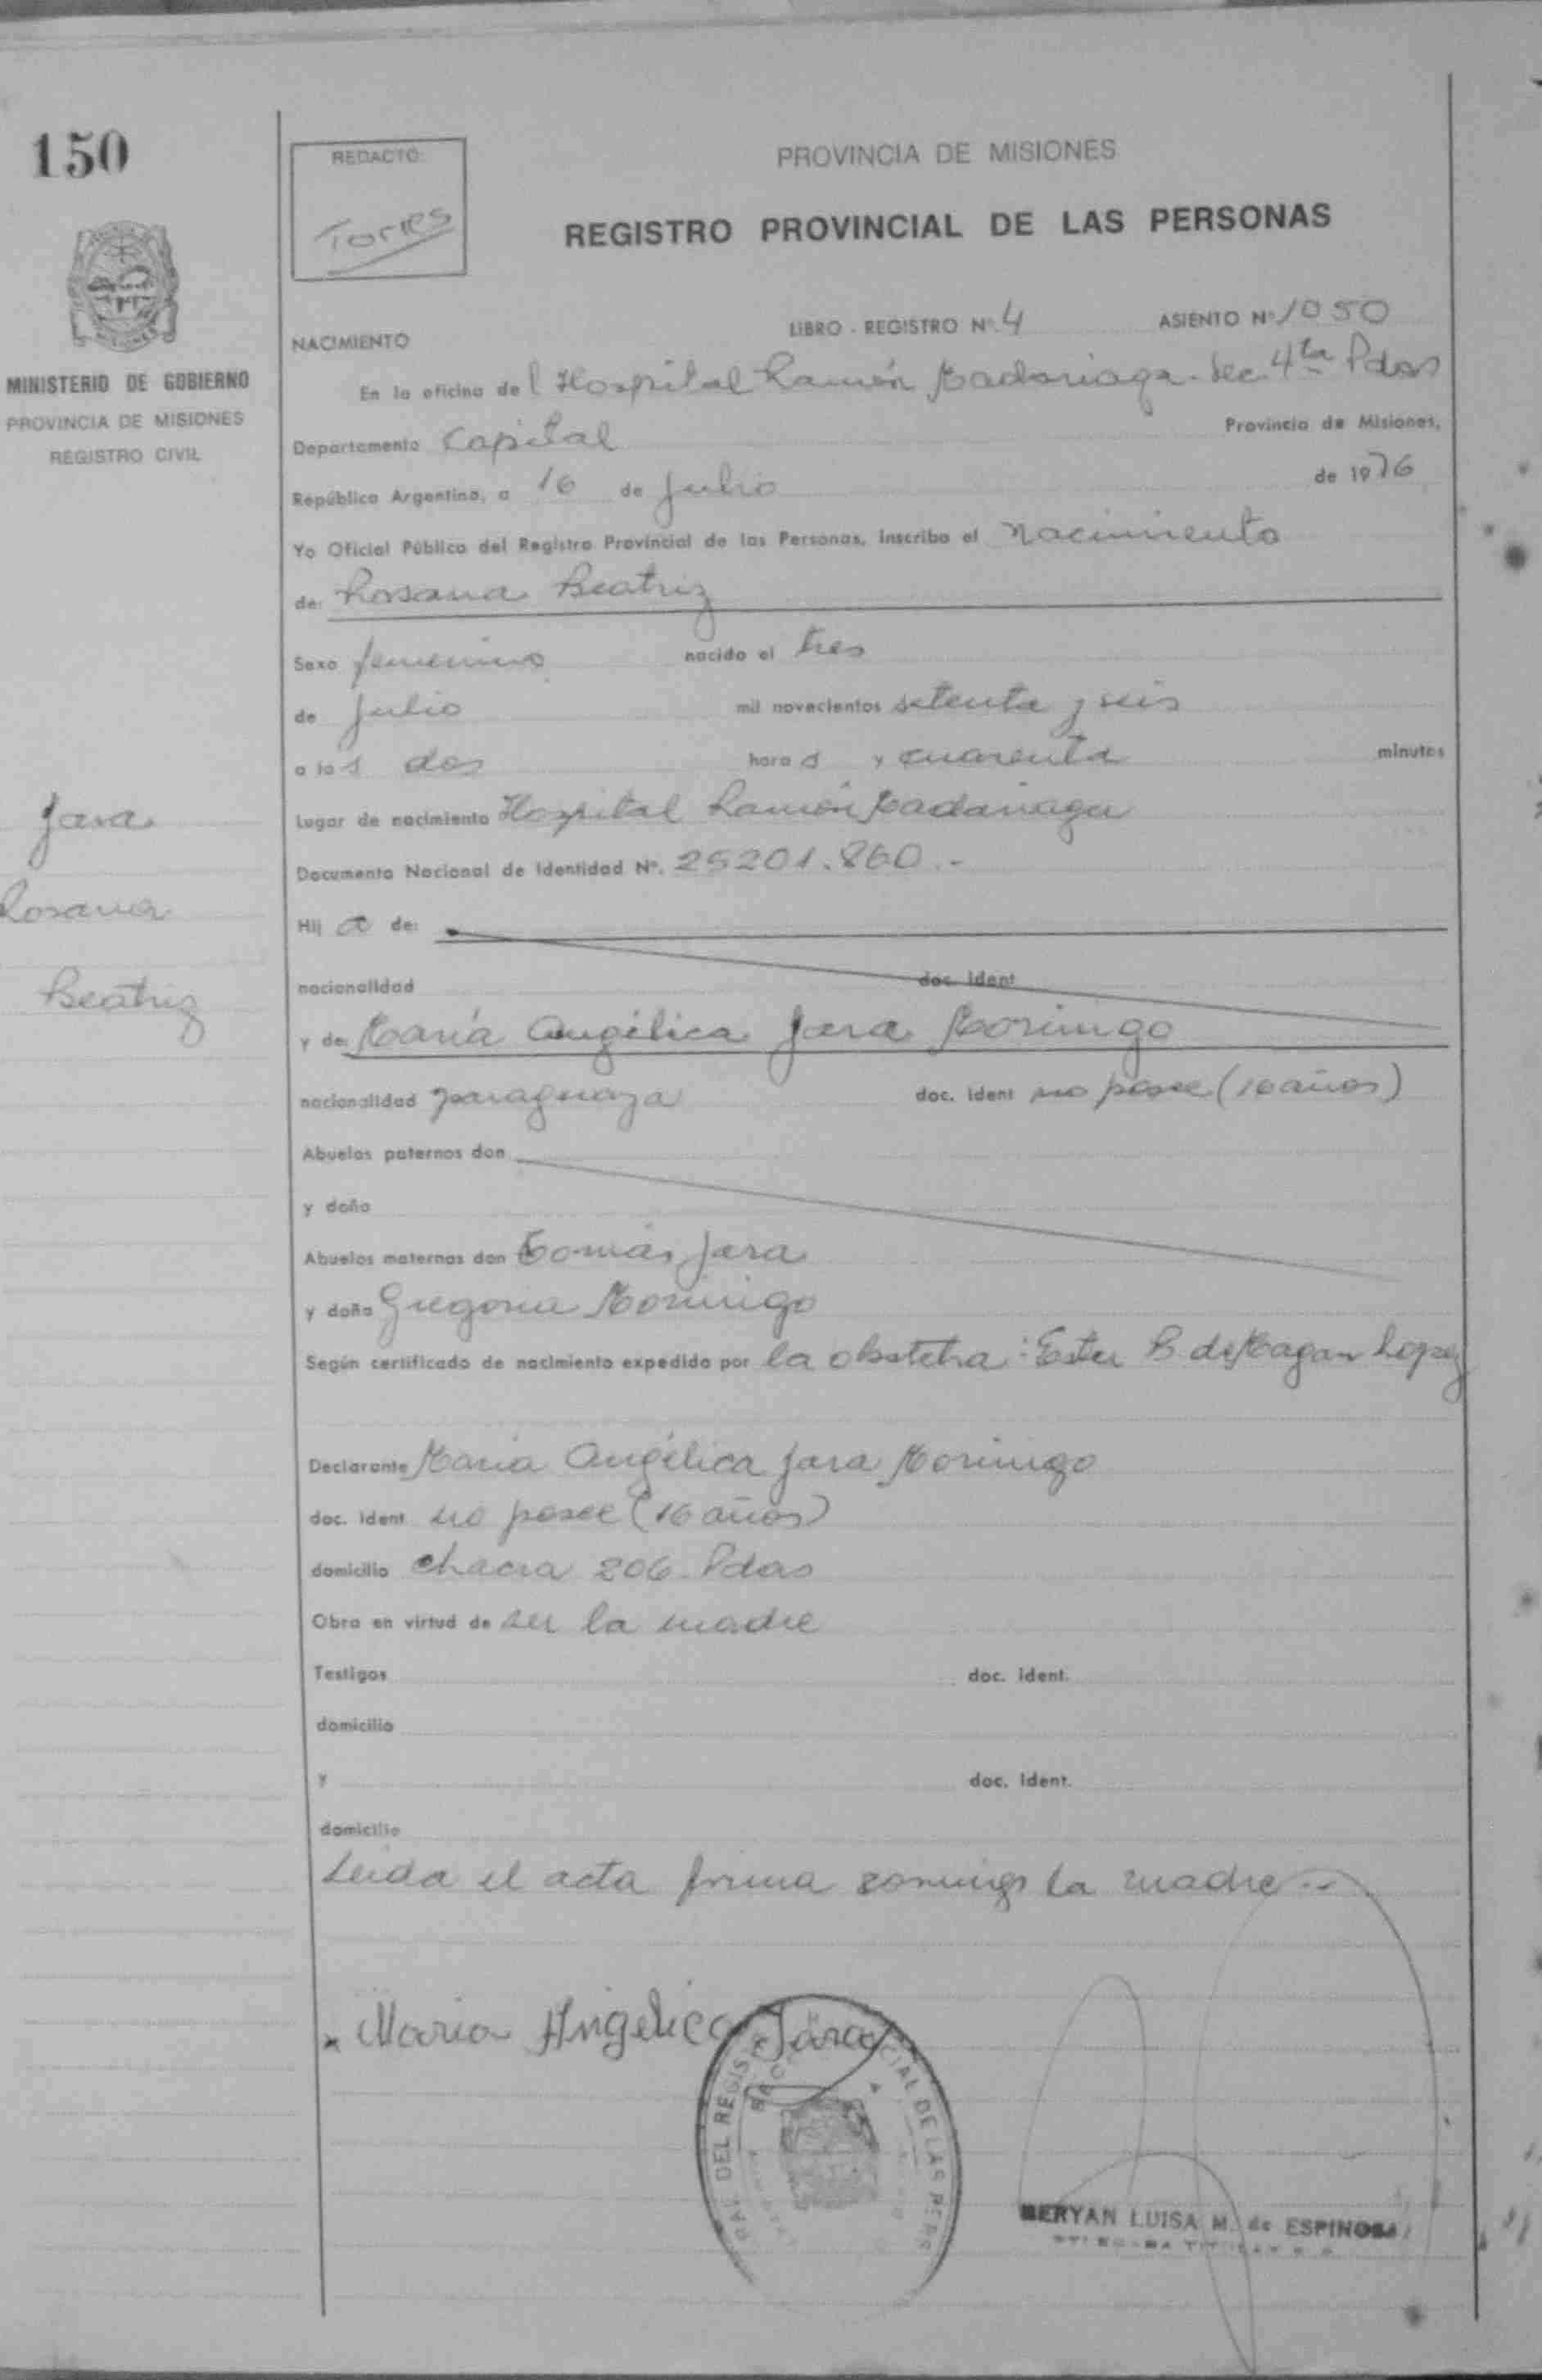 150
MINISTERIO DE GOBIERNO
PROVINCIA DE MISIONES
REGISTRO CIVIL
Jara
Rosana
Beatriz
REDACTO:
Torres
PROVINCIA DE MISIONES
REGISTRO PROVINCIAL DE LAS PERSONAS
NACIMIENTO LIBRO - REGISTRO Nº. 4 ASIENTO Nº 1050
En la oficina del Hospital Ramón Madariaga - Sec 4ta Pdas
Departamento Capital Provincia de Misiones,
República Argentina, a 16 de Julio de 1976
Yo Oficial Público del Registro Provincial de las Personas, inscribo el Nacimiento
de: Rosana Beatriz
Sexo femenino nacido el tres
de Julio mil novecientos setenta y seis
a las dos horas y cuarenta minutos
Lugar de nacimiento Hospital Ramón Madariaga
Documento Nacional de Identidad Nº. 25201.860.-
Hija de:
nacionalidad doc. ident
y de: María Angélica Jara Moringo
nacionalidad paraguaya doc. ident no posee (16 años)
Abuelos paternos don
y doña
Abuelos maternos don Tomás Jara
y doña Gregoria Moringo
Según certificado de nacimiento expedido por la obstetra: Ester B. de Magan Lopez
Declarante María Angélica Jara Moringo
doc. ident no posee (16 años)
domicilio chacra 206 - Pdas
Obra en virtud de ser la madre
Testigos doc. ident.
domicilio
y doc. ident.
domicilio
Leida el acta firma conmigo la madre.-
x Maria Angelica Jara
DEL REGIS CIAL DE LAS PERS
MERYAN LUISA M. de ESPINOSA